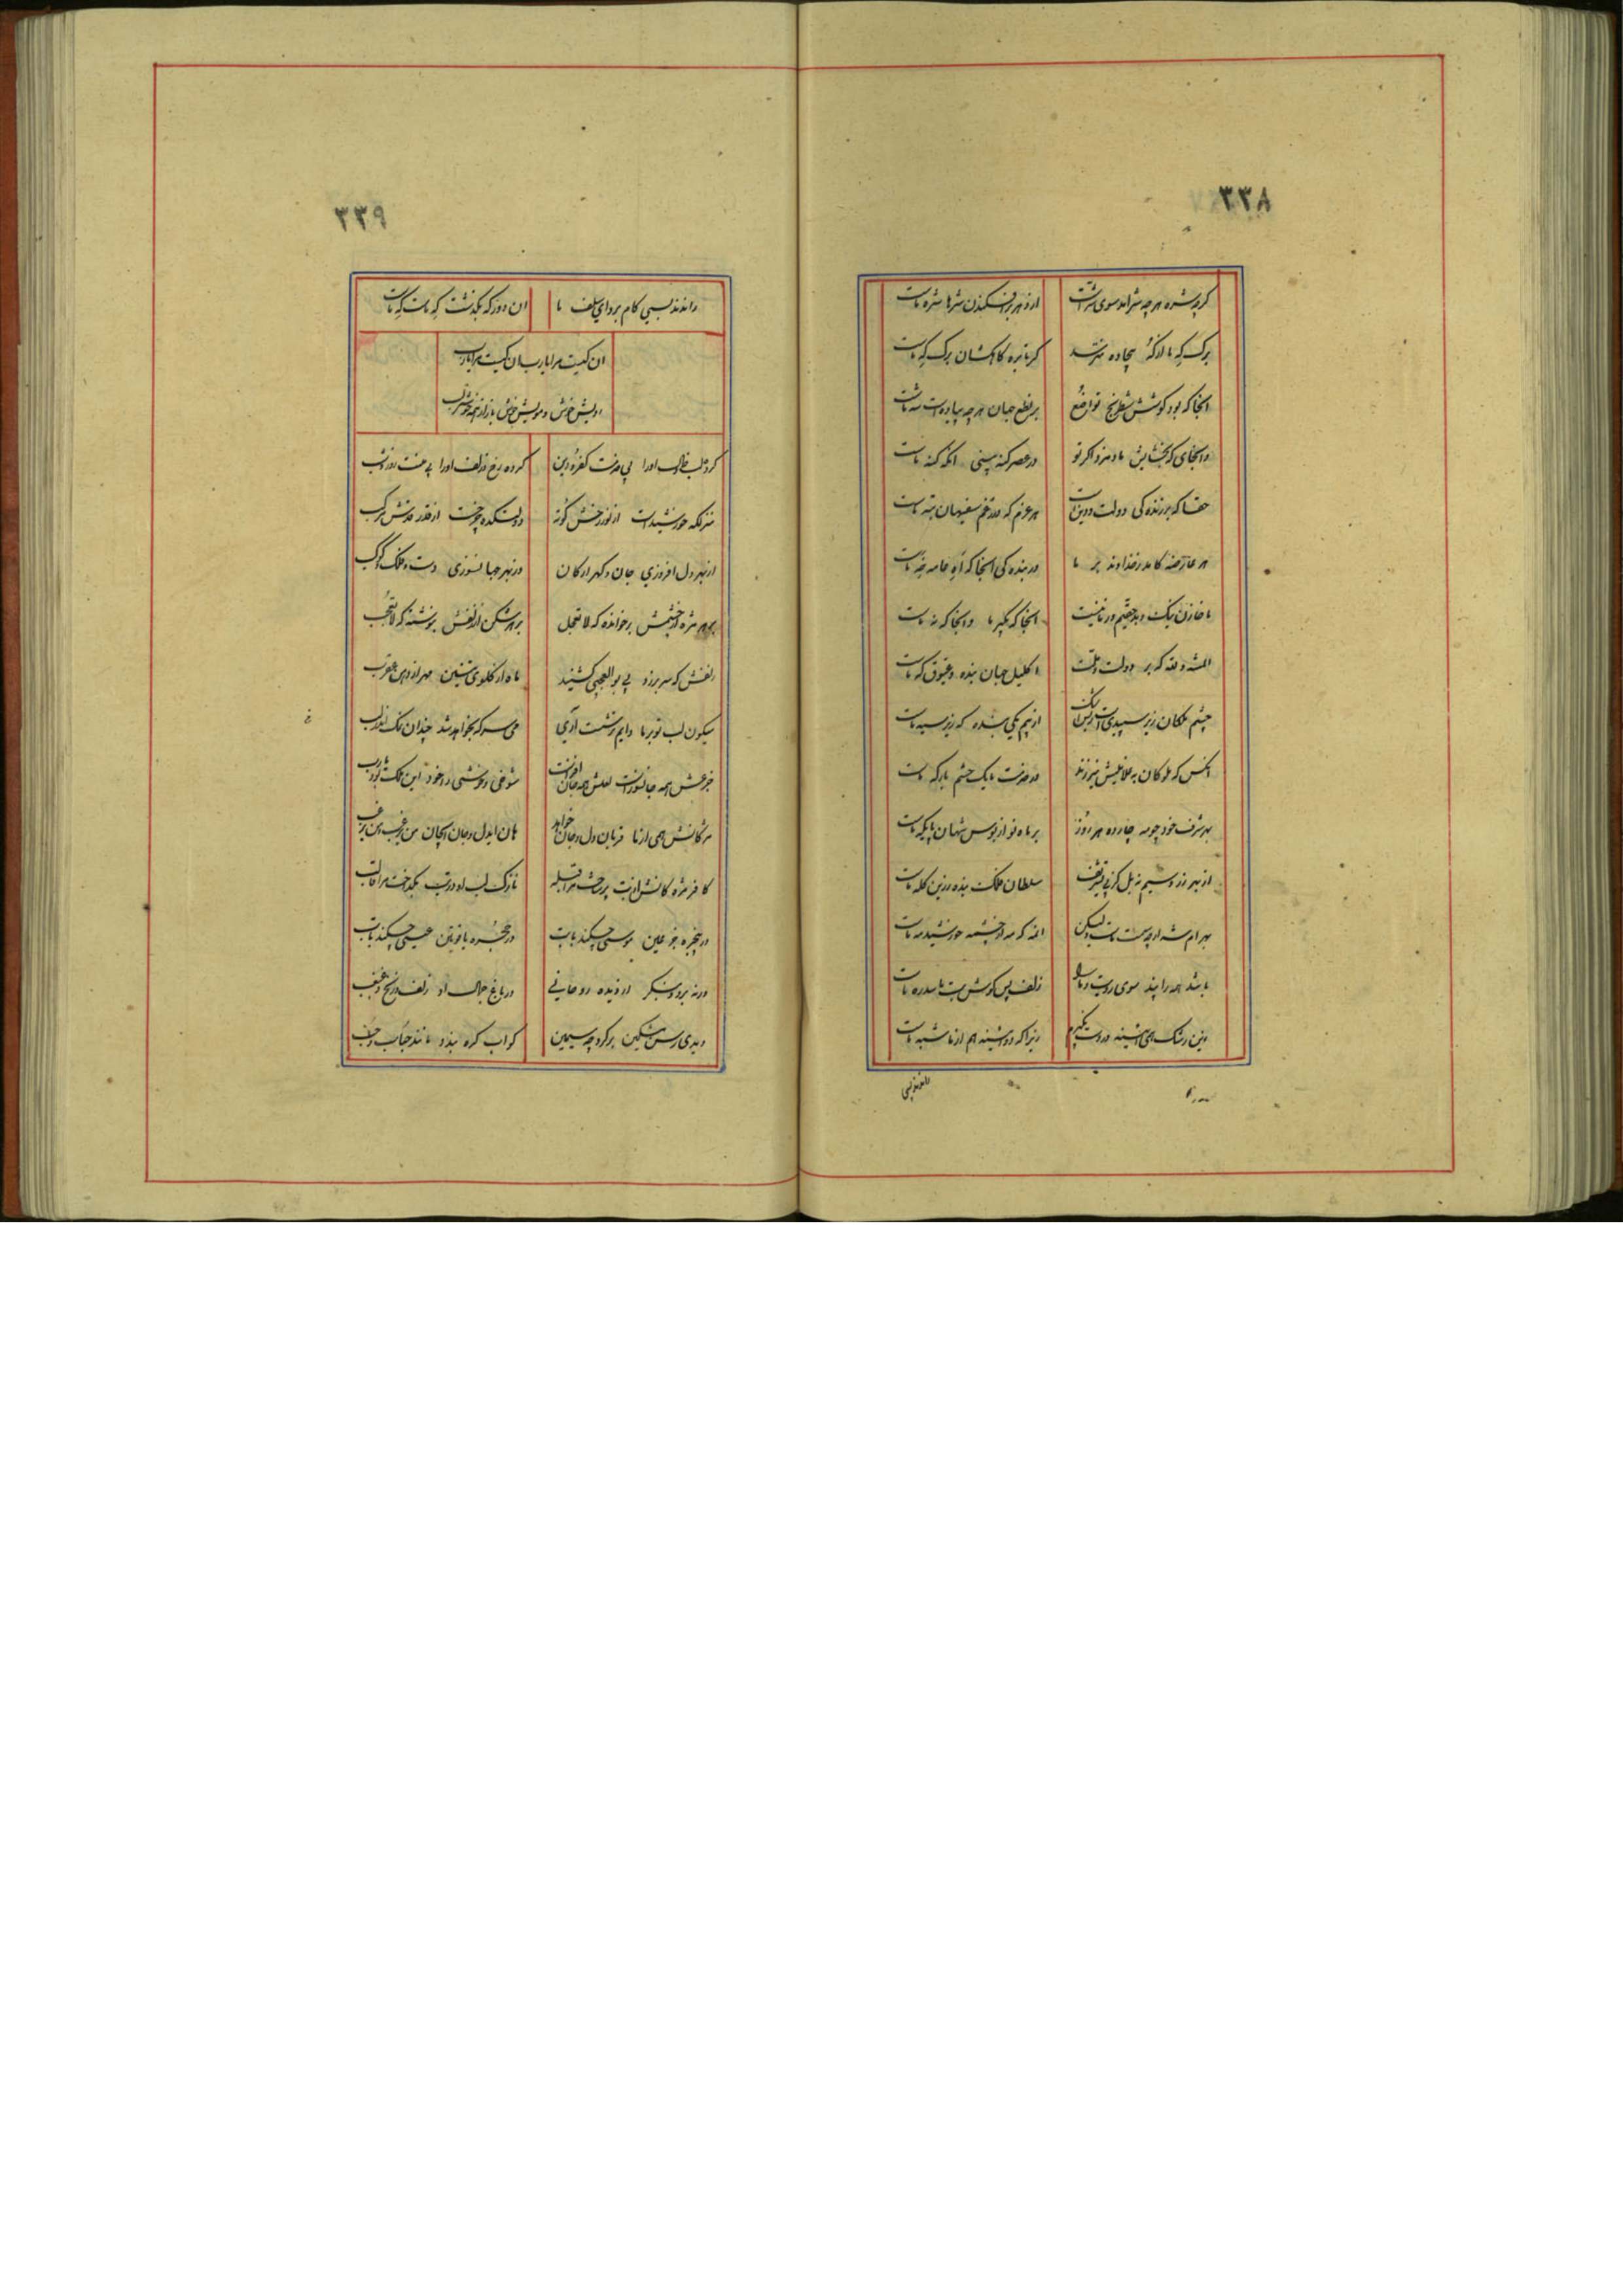 ٣٣٨
کرچه شره هر چه شر امد سوی شر است از زهر بر افکندن شرها شره ماست
برک که ما دانکه بیجاده کر نابره کاهکشان برک که ماست
انجا که بود کوشش شطرنج تواضع بر نطع جهان هر چه پیاده است شه ماست
وانجای که بخشایش ما مزد اکر تو در عصر کنه بینی انکه کنه ماست
حقا که برزنده کی دولت و دین است هر عزم که در تهماست
هر عارضه کامد ز خداوند بر ما در بنده کی انجا که ماست
ما خازن نیک و بد حقیم و رنانیست انجا که نکیر ما وانجا که نه ماست
المنة لله که بر دولت و ملت اکلیل جهان بنده و عیوق که ماست
چشم ملکان زیر سپیدی است ازین رشک از بیم یکی بنده که زیر سیه ماست
انکس که ملوکان به غلامیش نیرزند در حضرت ما یک حشم بارکه ماست
بهر شرف خود چو مه چارده هر روز بر ماه نو از بوس شهان پایکه ماست
از بهر زر و سیم نه بل کز پی تشریف سلطان فلک بنده زرین کله ماست
بهرام شه ار چه سمت ماست ولیکن انمه که مه از چشمه خورشید مه ماست
باشد همه را پند سوی روی بت و ما را زلف پس کوش بت ما سد ره ماست
زین رشک همی اینه در دست نکیرم زیرا که در ایینه هم از ما شبه ماست
راندند بسی
٣٣٩
راندند بسی کام بر دای سلف ما ان دور که بکذشت که ماست که ماست
ان کیست مرا یارب ان کیست مرا یارب
رویش خوش و مویش خوش باز از همه خوشتر لب
کرده لب و خال او را بی حضرت کفر و دین کرده رخ و زلف او را بی منت روز و شب
منزلکه خورشید است از نور رخش کونه دولتکده چرخست از قدر قدش مرکب
از بهر دل افروزی جان و کهر از کان وز بهر جهانسوزی دست و فلک و کوکب
بر هر مژه از چشمش بر خوانده که لا تعجل بر هر شکن از زلفش بنوشته که لا تعجب
زلفش که سر برزد بی بو العجبی کشنید ماه از کلوی تنین مهر از دهن عقرب
میکون لب تو بر ما دایم ترشست اری می سرکه بخواهد شد چندان نمک اندر لب
جزعش همه جانسوز است لعلش همه جان افروز است شوخی و خوشی در خود این ملک بود یارب
مژکانش همی از ما قربان دل و جان خواهد هان ای دل و جان
کافر مژه کانش از بت پرداخت مرا قبله نازک لب او در تب بکداخت مرا قالب
در پنجره جزعین موسی چکند با بت در حجره یاقوتین عیسی چکند با تب
ورنه برو و بنکر از دیده روحانی در باغ جمال او زلف و زنخ و غبغب
دیدی رسن مشکین بر کرد چه سیمین کو اب کره بندد مانند حباب و حب